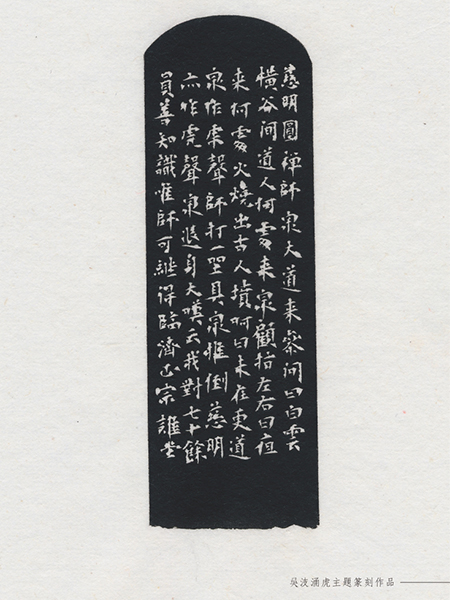 慈明圓禪師泉大道來參問曰白雲
橫谷間道人何處來泉顧指左右曰夜
來何處火燒出古人墳呵曰未在更道
泉作虎聲師打一坐具泉推倒慈明
亦作虎聲泉退身大嘆云我對七十餘
員善知識唯師可繼得臨濟正宗 誰堂
吳波涌虎主題篆刻作品